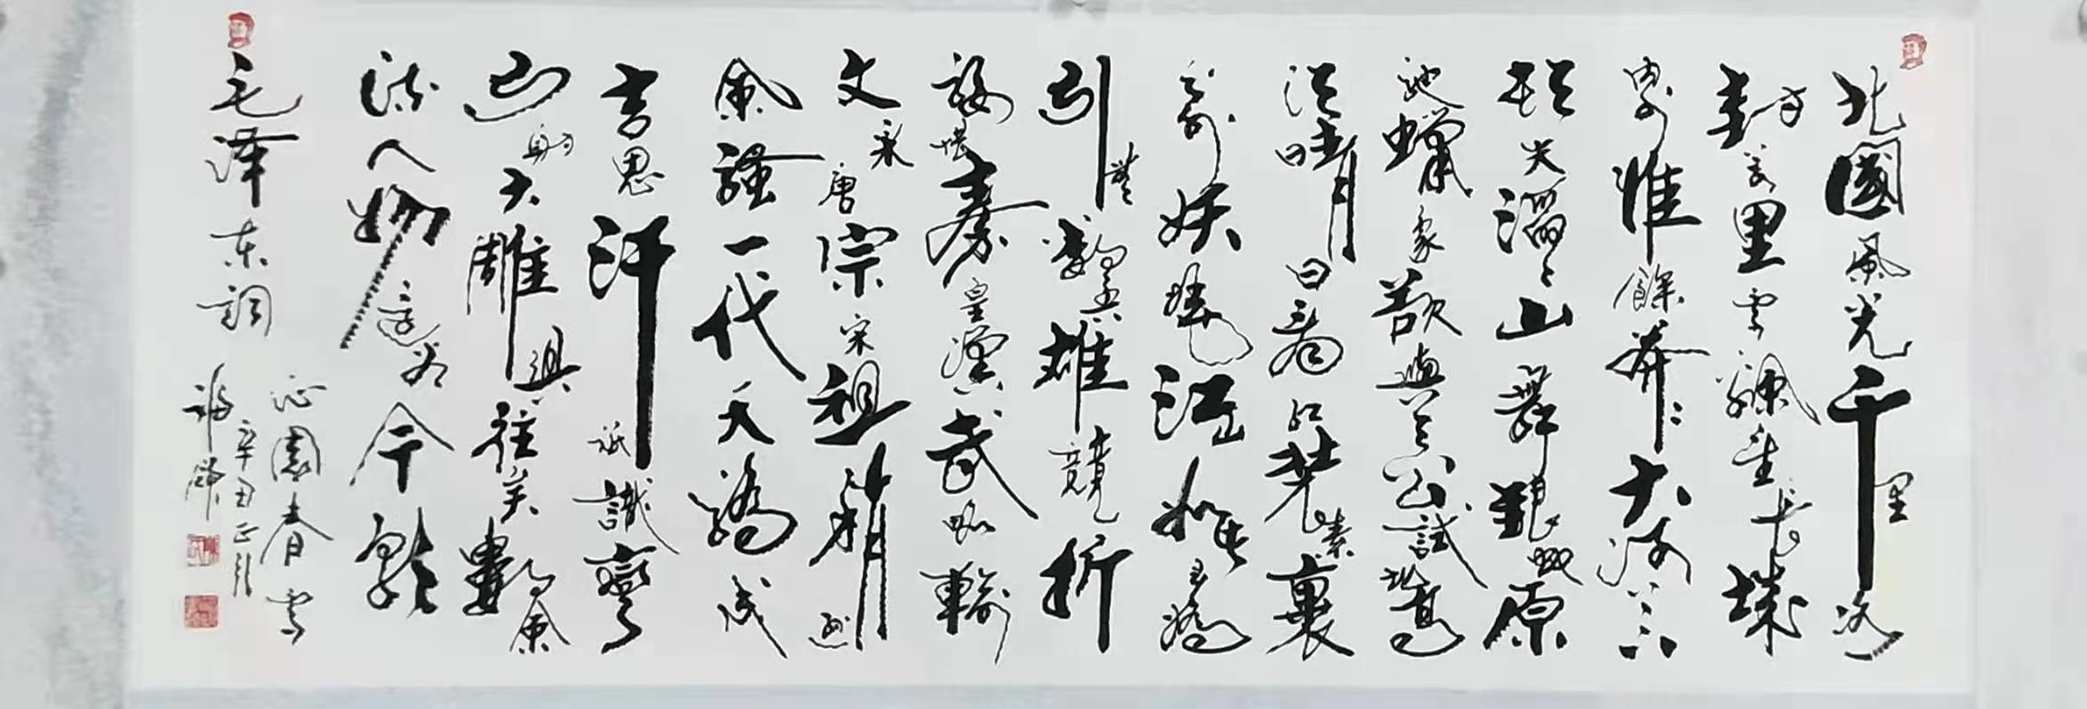 北國風光千里冰
封万里雪飄望長城
内外惟餘莽〻大河上下
頓失滔〻山舞銀蛇原
馳蠟象欲與天公試比高
須晴日看紅裝素裹
分外妖嬈江山如此多嬌
引無數英雄競折
腰惜秦皇漢武略輸
文采唐宗宋祖稍遜
風騷一代天驕成
吉思汗祇識彎
弓射大雕俱往矣數風
流人物還看今朝
毛澤东詞
沁園春雪
辛丑正月